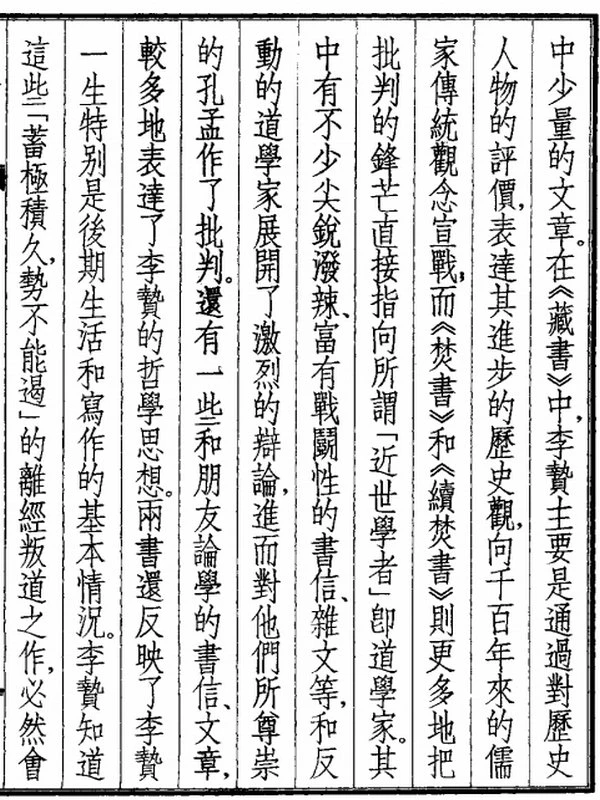 中少量的文章。在《藏書》中，李贄主要是通過對歷史
人物的評價，表達其進步的歷史觀，向千百年來的儒
家傳統觀念宣戰，而《焚書》和《續焚書》則更多地把
批判的鋒芒直接指向所謂「近世學者」卽道學家。其
中有不少尖銳潑辣、富有戰鬭性的書信、雜文等，和反
動的道學家展開了激烈的辯論，進而對他們所尊崇
的孔孟作了批判。還有一些和朋友論學的書信、文章，
較多地表達了李贄的哲學思想。兩書還反映了李贄
一生特别是後期生活和寫作的基本情况。李贄知道
這些「蓄極積久，勢不能遏」的離經叛道之作，必然會